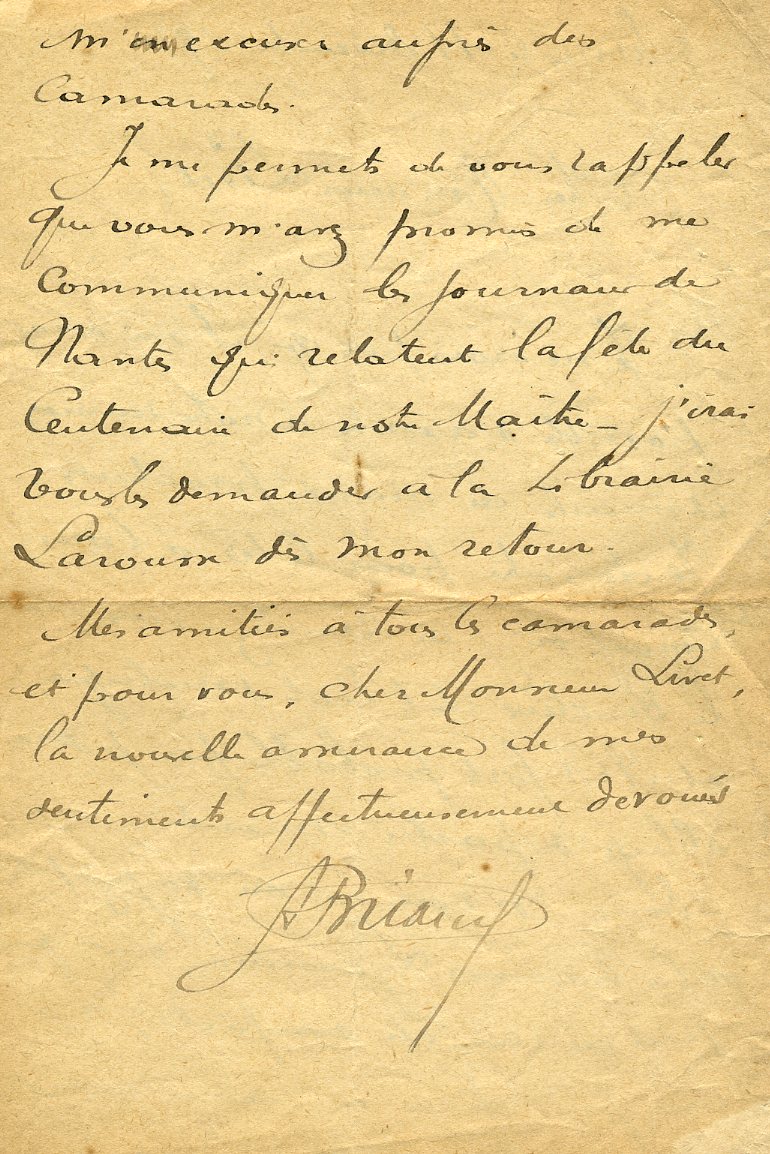 m'en excuser auprès des
Camarades.
Je me permets de vous rappeler
que vous m'avez promis de me
communiquer les journaux de
Nantes qui relatent la fête du
Centenaire de notre Maître _ j'irai
vous les demander à la Librairie
Larousse dès mon retour.
Mes amitiés à tous les camarades,
et pour vous, cher Monsieur Livet,
la nouvelle assurance de mes
sentiments affectueusement dévoués